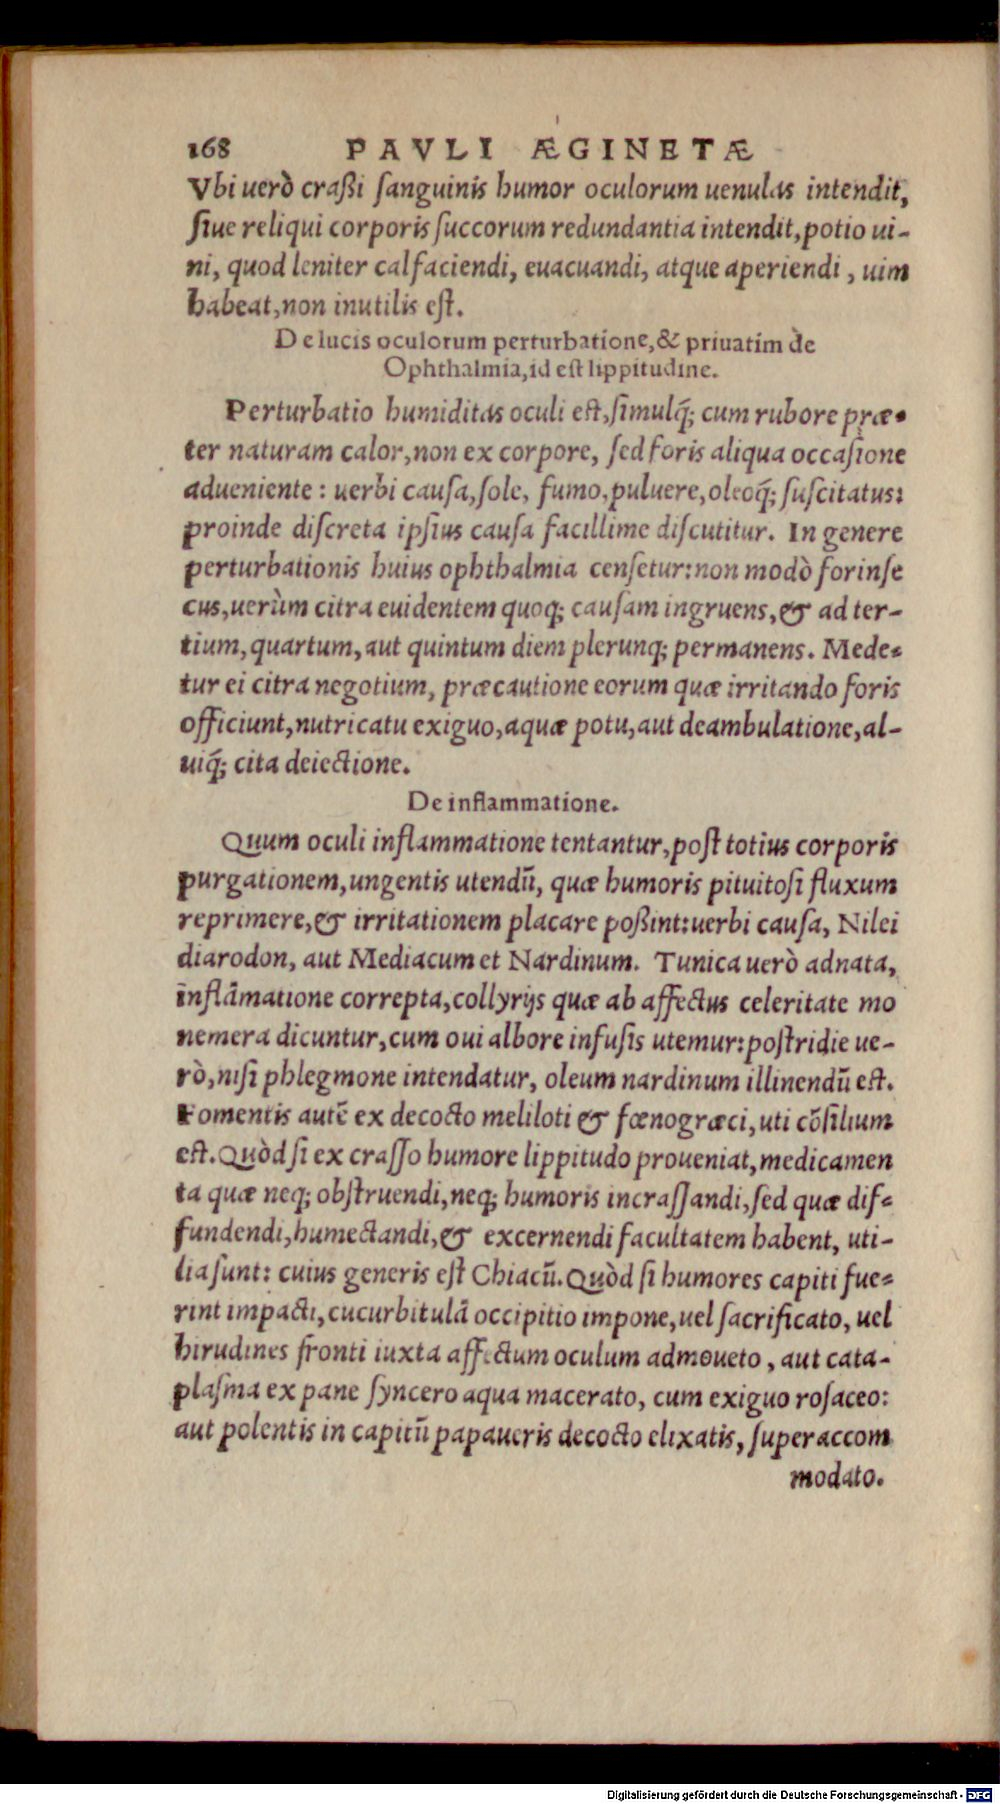 168 PAVLI ÆGINETÆ
Vbi uerò craßi ſanguinis humor oculorum uenulas intendit,
ſiue reliqui corporis ſuccorum redundantia intendit, potio ui-
ni, quod leniter calfaciendi, euacuandi, atque aperiendi, uim
habeat, non inutilis eſt.
De lucis oculorum perturbatione, & priuatim de
Ophthalmia, id eſt lippitudine.
Perturbatio humiditas oculi eſt, ſimulq́; cum rubore præ-
ter naturam calor, non ex corpore, ſed foris aliqua occaſione
adueniente: uerbi cauſa, ſole, fumo, puluere, oleoq́; ſuſcitatus:
proinde diſcreta ipſius cauſa facillime diſcutitur. In genere
perturbationis huius ophthalmia cenſetur: non modò forinſe
cus, uerùm citra euidentem quoq; cauſam ingruens, & ad ter-
tium, quartum, aut quintum diem plerunq; permanens. Mede-
tur ei citra negotium, præcautione eorum quæ irritando foris
officiunt, nutricatu exiguo, aquæ potu, aut deambulatione, al-
uiq́; cita deiectione.
De inflammatione.
Quum oculi inflammatione tentantur, poſt totius corporis
purgationem, ungentis utendū, quæ humoris pituitoſi fluxum
reprimere, & irritationem placare poßint: uerbi cauſa, Nilei
diarodon, aut Mediacum et Nardinum. Tunica uerò adnata,
inflāmatione correpta, collyrijs quæ ab affectus celeritate mo
nemera dicuntur, cum oui albore infuſis utemur: poſtridie ue-
rò, niſi phlegmone intendatur, oleum nardinum illinendū eſt.
Fomentis autē ex decocto meliloti & fœnogræci, uti cōſilium
eſt. Quòd ſi ex craſſo humore lippitudo proueniat, medicamen
ta quæ neq; obſtruendi, neq; humoris incraſſandi, ſed quæ dif-
fundendi, humectandi, & excernendi facultatem habent, uti-
lia ſunt: cuius generis eſt Chiacū. Quòd ſi humores capiti fue-
rint impacti, cucurbitulā occipitio impone, uel ſacrificato, uel
hirudines fronti iuxta affectum oculum admoueto, aut cata-
plaſma ex pane ſyncero aqua macerato, cum exiguo roſaceo:
aut polentis in capitū papaueris decocto elixatis, ſuperaccom
modato.
Digitalisierung gefördert durch die Deutsche Forschungsgemeinschaft - DFG